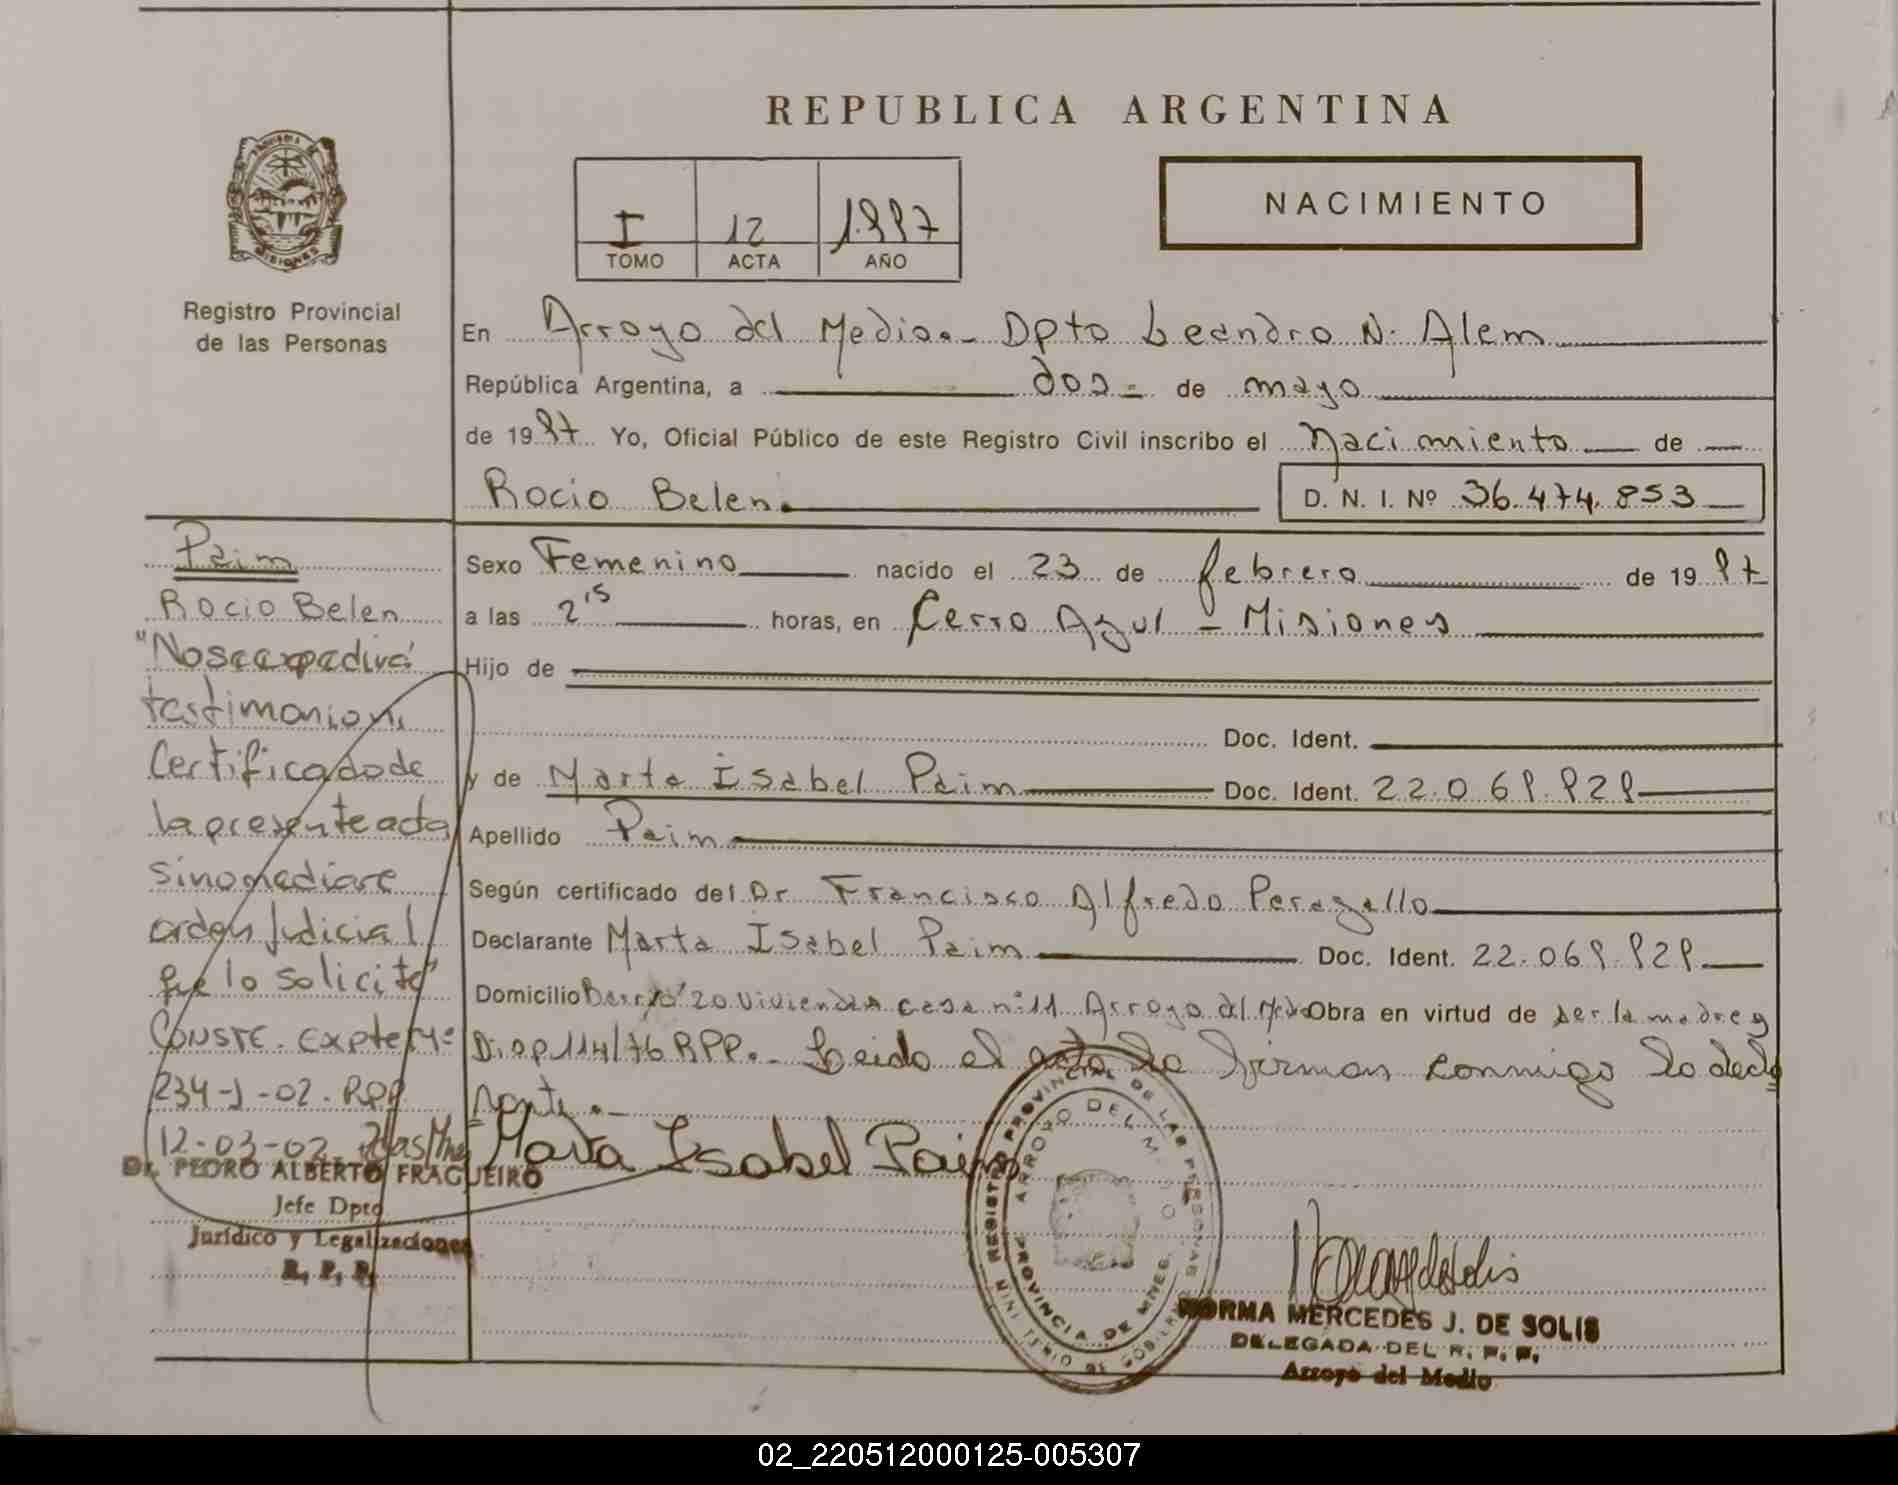 REPUBLICA ARGENTINA
NACIMIENTO
I 12 1.997
TOMO ACTA AÑO
MISIONES
Registro Provincial
de las Personas
En Arroyo del Medio.- Dpto Leandro N. Alem
República Argentina, a dos- de mayo
de 1997 Yo, Oficial Público de este Registro Civil inscribo el Nacimiento de
Rocio Belen. D. N. I. Nº 36.474.853
Sexo Femenino nacido el 23 de febrero de 1997
a las 2'15 horas, en Cerro Azul - Misiones
Hijo de
Doc. Ident.
y de Marta Isabel Paim Doc. Ident. 22.069.929
Apellido Paim
Según certificado del Dr. Francisco Alfredo Peragallo
Declarante Marta Isabel Paim Doc. Ident. 22.069.929
Domicilio Barrio 20 Viviendas casa nº 11 Arroyo del Medio Obra en virtud de ser la madre y
Disp. 114/76 RPP.- Leida el acta la firman conmigo la decla
rante.-
Marta Isabel Paim
Paim
Rocio Belen
"No se expedirá
testimonio ni
Certificado de
la presente acta
sino mediare
orden Judicial
que lo solicite"
CONSTE. Expte Nº
234-J-02. RPP
12-03-02.
Dr. PEDRO ALBERTO FRAGUEIRO
Jefe Dpto
Jurídico y Legalizaciones
R. P. P.
REGISTRO PROVINCIAL DE LAS PERSONAS
ARROYO DEL MEDIO
PROVINCIA DE MNES.
MINISTERIO DE GOBIERNO
NORMA MERCEDES J. DE SOLIS
DELEGADA DEL R. P. P.
Arroyo del Medio
02_220512000125-005307